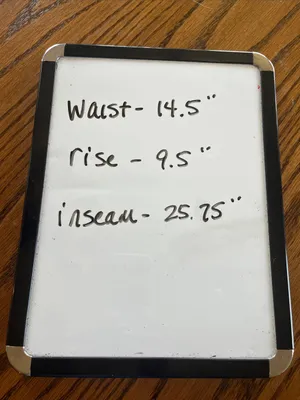 Waist - 14.5"
rise - 9.5"
inseam - 25.75"